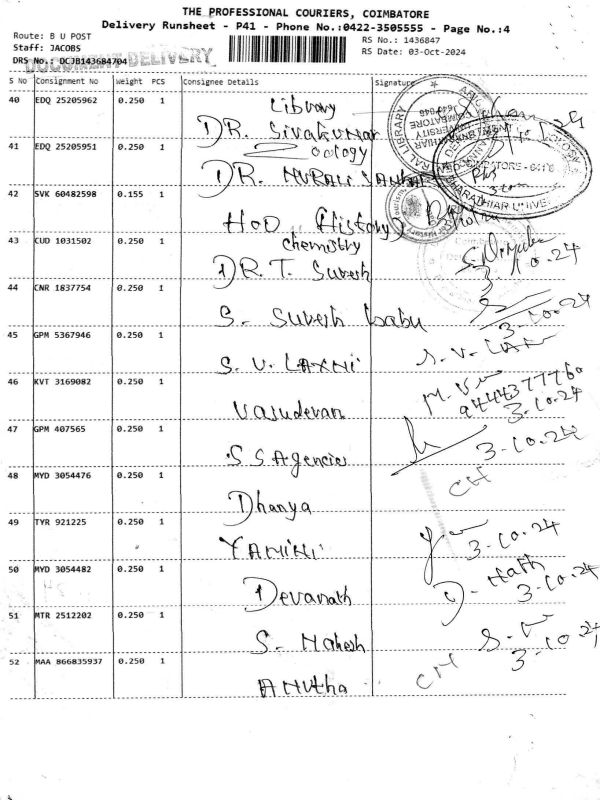 THE PROFESSIONAL COURIERS, COIMBATORE
Delivery Runsheet - P41 - Phone No.:0422-3505555 - Page No.:4
Route: B U POST
RS No.: 1436847
Staff: JACOBS
RS Date: 03-Oct-2024
DRS No.: DCJB143684704
DOCUMENT DELIVERY
S No Consignment No Weight PCS Consignee Details Signature
Library
40 EDQ 25205962 0.250 1 DR. Sivakumar
Zoology
41 EDQ 25205951 0.250 1 DR. Murali Sankar
42 SVK 60482598 0.155 1 HOD (History)
Chemistry
43 CUD 1031502 0.250 1 DR. T. Suresh
3.10.24
44 CNR 1837754 0.250 1 S. Suresh babu
3-10-24
45 GPM 5367946 0.250 1 S. V. Laxmi
46 KVT 3169082 0.250 1 Vasudevan
9444377760
3-10-24
47 GPM 407565 0.250 1 S S Agencies
3-10-24
48 MYD 3054476 0.250 1 Dhanya CH
49 TYR 921225 0.250 1 YAMINI
3-10-24
50 MYD 3054482 0.250 1 Devanath D. Nath
3-10-24
51 MTR 2512202 0.250 1 S. Mahesh
3-10 24
52 MAA 866835937 0.250 1 Anutha CH